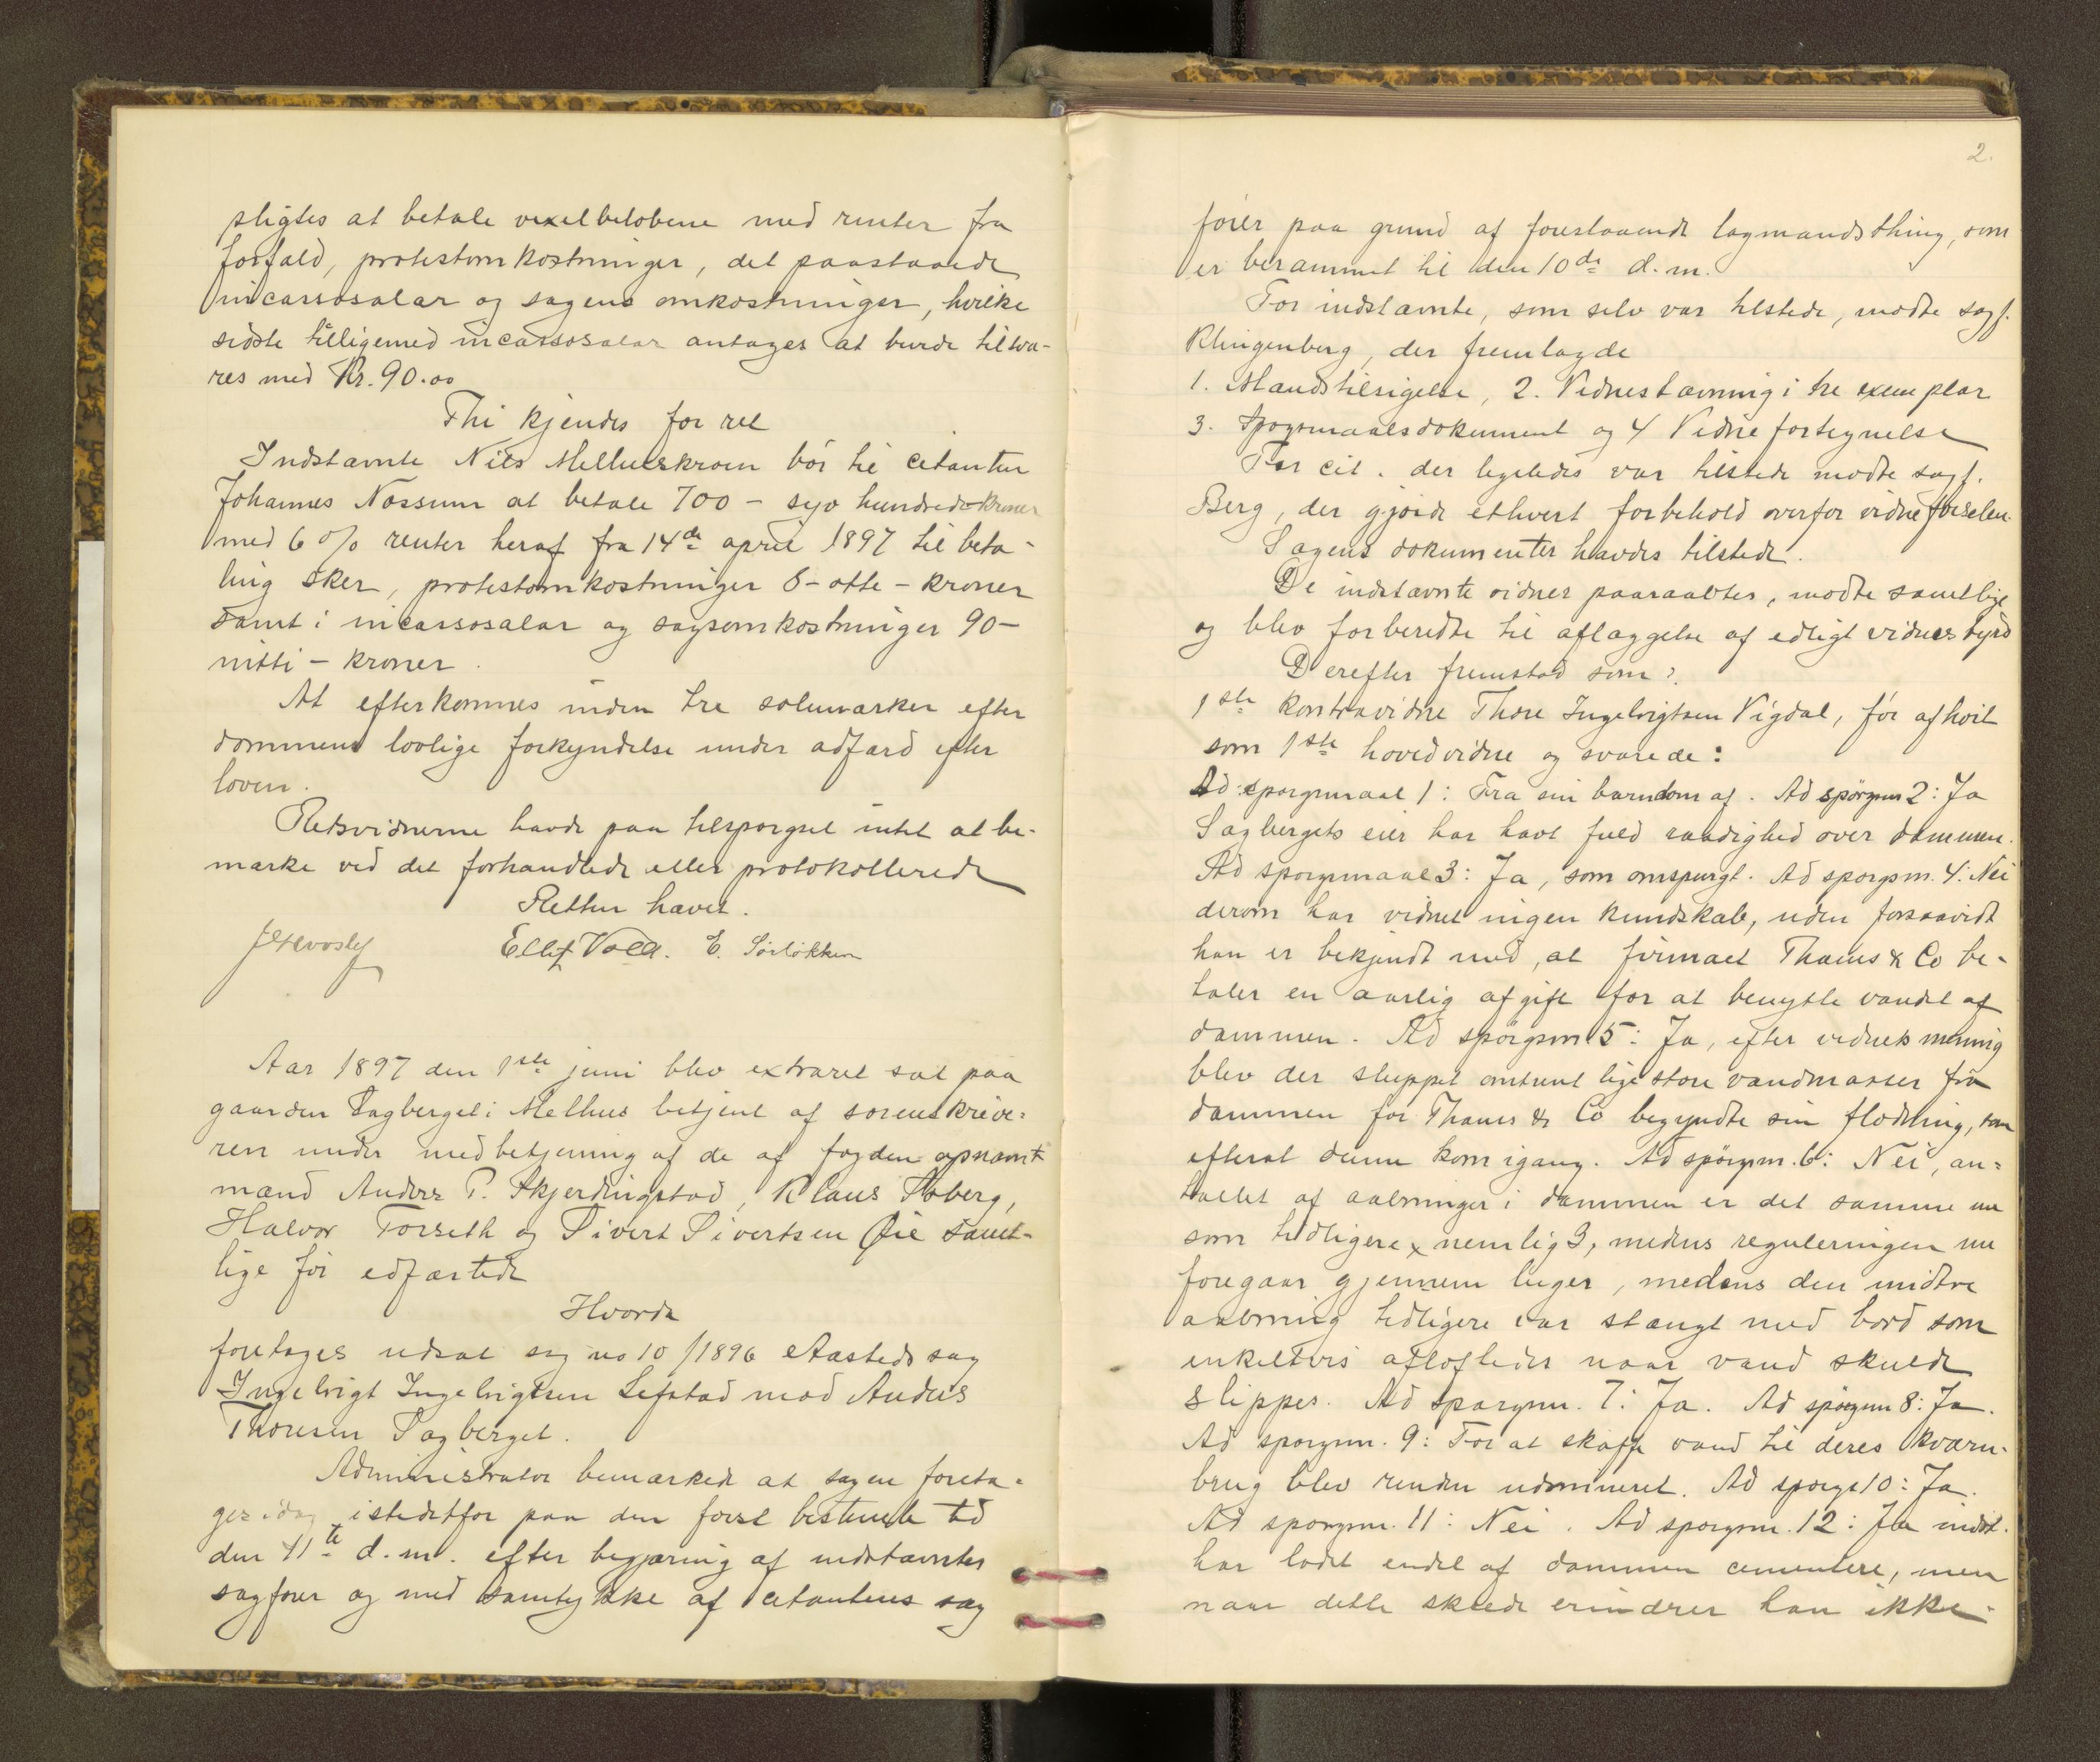 pligtes at betale vexelbeløbene med renter fra
forfald, protestomkostninger, det paastaaede
incassosalær og sagens omkostninger, hvilke
sidste tilligemed incassosalær antages at burde tilsva-
res med Kr. 90.00
Thi kjendes for ret
Indstævnte Nils Melhuskroen bør til citanten
Johannes Nossum at betale 700 - syv hundrede kroner
med 6 % renter heraf fra 14de april 1897 til beta-
ling sker, protestomkostninger 8 - otte - kroner
samt i incassosalær og sagsomkostninger 90 -
nitti - kroner.
At efterkommes inden tre solemærker efter
dommens lovlige forkyndelse under adfærd efter
loven.
Retsvidnerne havde paa tilspørgsel intet at be-
mærke ved det forhandlede eller protokollerede
Retten hævet.
Ellef Vold. E. Sørløkken
Aar 1897 den 1ste juni blev extraret sat paa
gaarden Sagberget i Melhus betjent af sorenskrive-
ren under medbetjening af de af fogden opnævnte
mænd Anders P. Skjerdingstad, Klaus Søberg,
Halvor Forseth og Sivert Sivertsen Øie samt-
lige før edfæstede
Hvorda
foretoges udsat sag no 10/1896 Aastedssag
Ingebrigt Ingebrigtsen Lefstad mod Anders
Thoresen Sagberget.
Administrator bemærkede at sagen foreta-
ges idag istedetfor paa den først bestemte tid
den 11te d.m. efter begjæring af indstævntes
sagfører og med samtykke af citantens sag
2.
fører paa grund af forestaaende lagmandsthing, som
er berammet til den 10de d.m.
For indstævnte, som selv var tilstede, mødte sagf.
Klingenberg, der fremlagde
1. Mandstilsigelse, 2. Vidnestævning i tre exemplar
3. Spørgsmaalsdokument og 4 Vidnefortegnelse
For cit. der ligeledes var tilstede mødte sagf.
Berg, der gjorde ethvert forbehold overfor vidneførselen.
Sagens dokumenter havdes tilstede.
De indstævnte vidner paaraabtes, mødte samtlige
og blev forberedte til aflæggelse af edligt vidnesbyrd
Derefter fremstod som:
1ste kontravidne Thore Ingebrigtsen Vigdal, før afhørt
som 1ste hovedvidne og svarede:
Ad spørgsmaal 1: Fra sin barndom af. Ad spørgsm 2: Ja
Sagbergets eier har havt fuld raadighed over dammen.
Ad spørgsmaal 3: Ja, som omspurgt. Ad spørgsm. 4: Nei
derom har vidnet ingen kundskab, uden forsaavidt
han er bekjendt med, at firmaet Thams & Co be-
taler en aarlig afgift for at benytte vandet af
dammen. Ad spørgsm 5: Ja, efter vidnets mening
blev der sluppet omtrent lige store vandmasser fra
dammen før Thams & Co begyndte sin flødning, som
efterat denne kom igang. Ad spørgsm. 6: Nei, an-
tallet af aabninger i dammen er det samme nu
som tidligere, nemlig 3, medens reguleringen nu
foregaar gjennem luger, medens den midtre
aabning tidligere var stængt med bord som
enkeltvis afløftedes naar vand skulde
slippes. Ad spørgsm. 7: Ja. Ad spørgsm 8: Ja.
Ad spørgsm. 9: For at skaffe vand til deres kværn-
brug blev renden udmineret. Ad spørgs 10: Ja.
Ad spørgsm. 11: Nei. Ad spørgsm. 12: Ja indst.
har ladet endel af dammen cementere, men
naar dette skede erindrer han ikke.